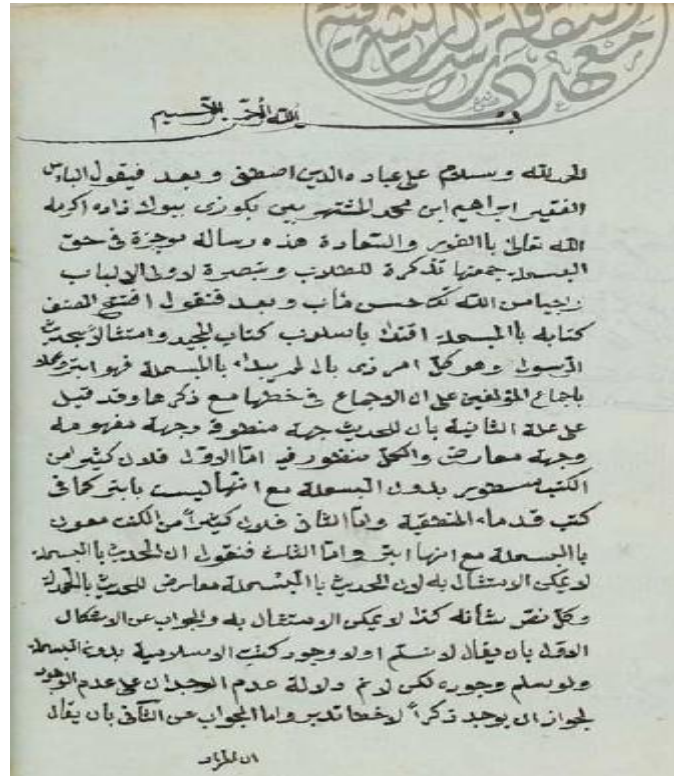 معهد الثقافة والدراسات الشرقية
بسم الله الرحمن الرحيم
الحمد لله وسلام على عباده الذين اصطفى وبعد فيقول البائس
الفقير ابراهيم ابن محمد المشتهر بعى بكوزى بيوك زاده اكرمه
الله تعالى باالفوز والسعادة هذه رسالة موجزة في حق
البسملة جمعتها تذكرة للطلاب وتبصرة لاولى الالباب
راجيا من الله لى حسن مأب وبعد فنقول افتتح المصنف
كتابه باالبسملة اقتداء باسلوب كتاب المجيد وامتثالا بحديث
الرسول وهو كل امر ذى بال لم يبداء باالبسملة فهو ابتر وعملا
باجماع المؤلفين على ان الاجماع في خطها مع ذكرها وقد قيل
على علة الثانية بان للحديث جهة منطوق وجهة مفهوم له
وجهة معارض والكل منظور فيه اما الاول فلان كثيرا من
الكتب مسطور بدون البسملة مع انها ليست بابتر كما في
كتب قدماء المنطقية واما الثانى فلان كثيرا من الكتب معون
باالبسملة مع انها ابتر واما الثالث فنقول ان الحديث باالبسملة
لا يمكن الامتثال به لان الحديث باالبسملة معارض للحديث باالحمدلة
وكل نص شأنه كذا لا يمكن الامتثال به والجواب عن الاشكال
الاول بان يقال لا نسلم اولا وجود كتب الاسلامية بدون البسملة
ولو سلم وجوده لكن لا نم دلالة عدم الوجدان على عدم الوجود
لجواز ان يوجد ذكرا لا خطا تدبر واما الجواب عن الثانى بان يقال
ان المراد